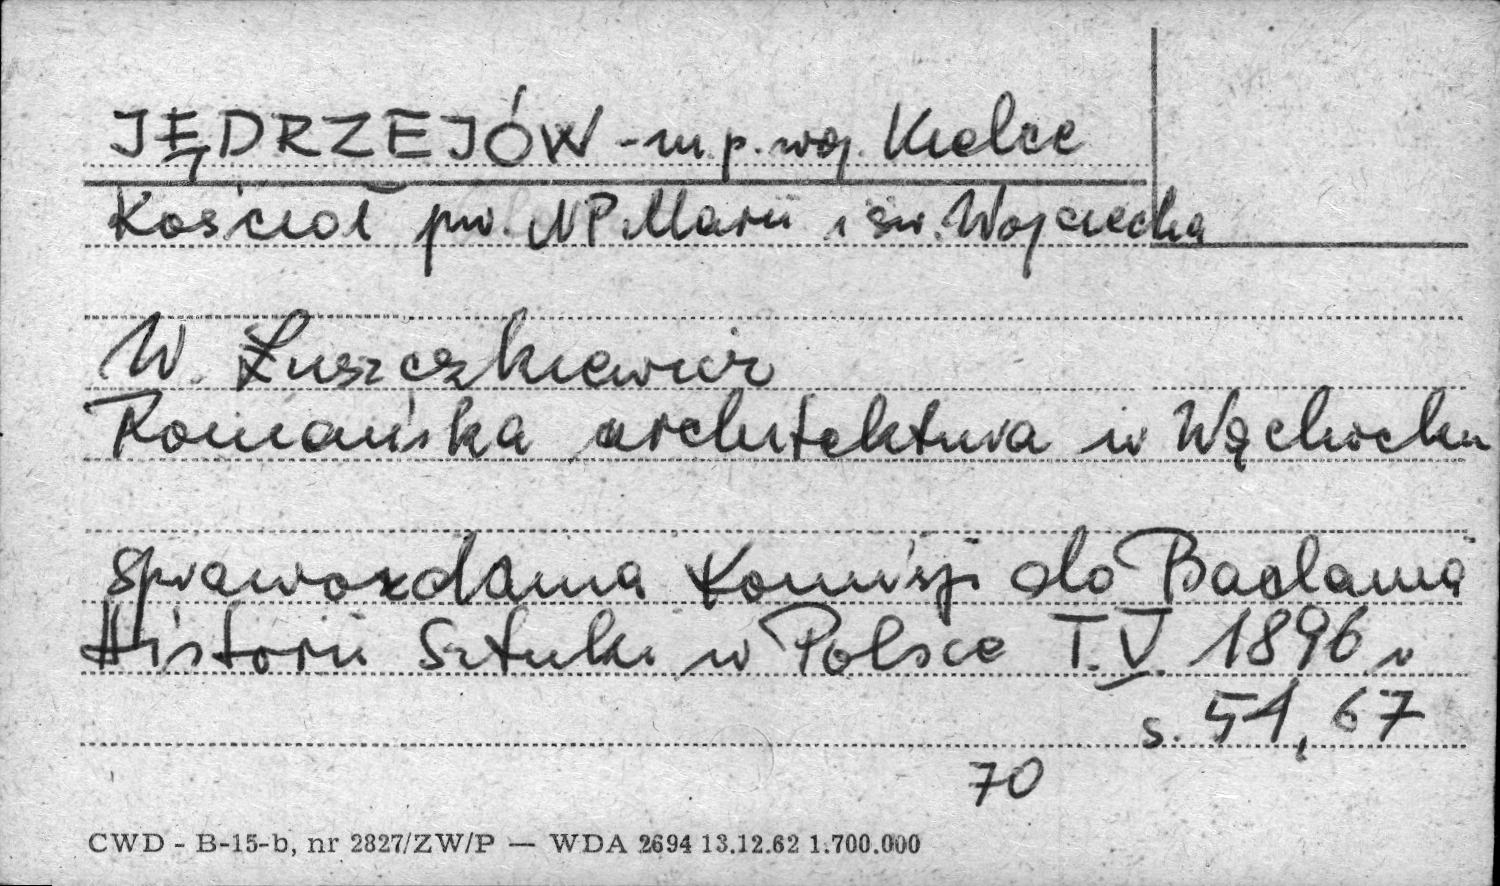 JĘDRZEJÓW - m. p. woj. Kielce
Kościoł pw. NP. Marii i św. Wojciecha
W. Łuszczkiewicz
Romańska architektura w Wąchocku
Sprawozdania Komisji do Badania
Historii Sztuki w Polsce T. V. 1896 r
s. 51, 67
70
CWD - B-15-b, nr 2827/ZW/P — WDA 2694 13.12.62 1.700.000